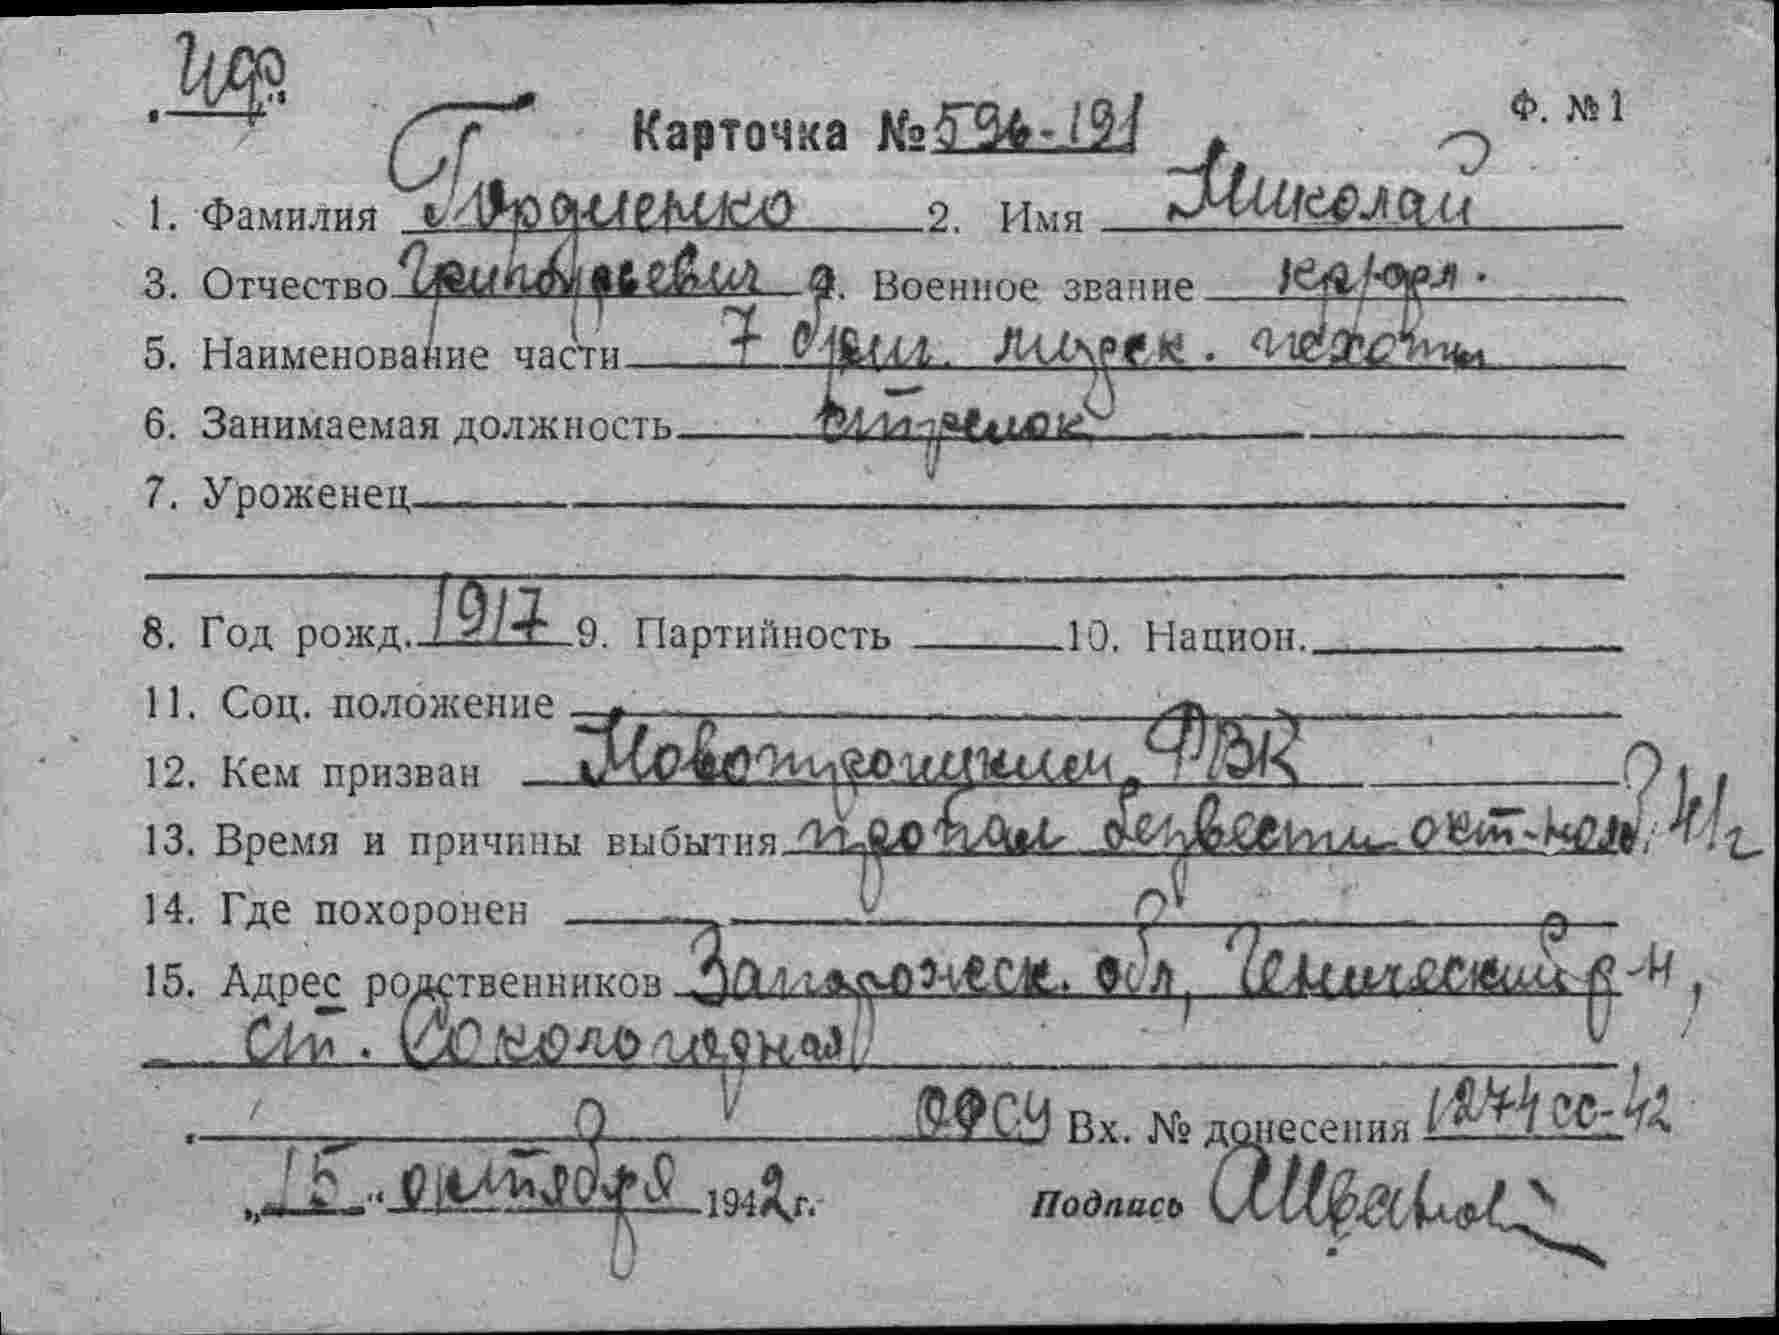 Ф. № 1
Карточка № 596-191
1. Фамилия Гордиенко 2. Имя Николай
3. Отчество Григорьевич 4. Военное звание
5. Наименование части 7 бриг. морск. пехоты
6. Занимаемая должность стрелок
7. Уроженец
8. Год рожд. 1917 9. Партийность 10. Национ.
11. Соц. положение
12. Кем призван Новотроицким РВК
13. Время и причины выбытия пропал безвести окт-нояб. 41г
14. Где похоронен
15. Адрес родственников Запорожск. обл, Генический р-н,
ст. Сокологорная
Вх. № донесения 1274сс-42
„15“ октября 1942 г. Подпись